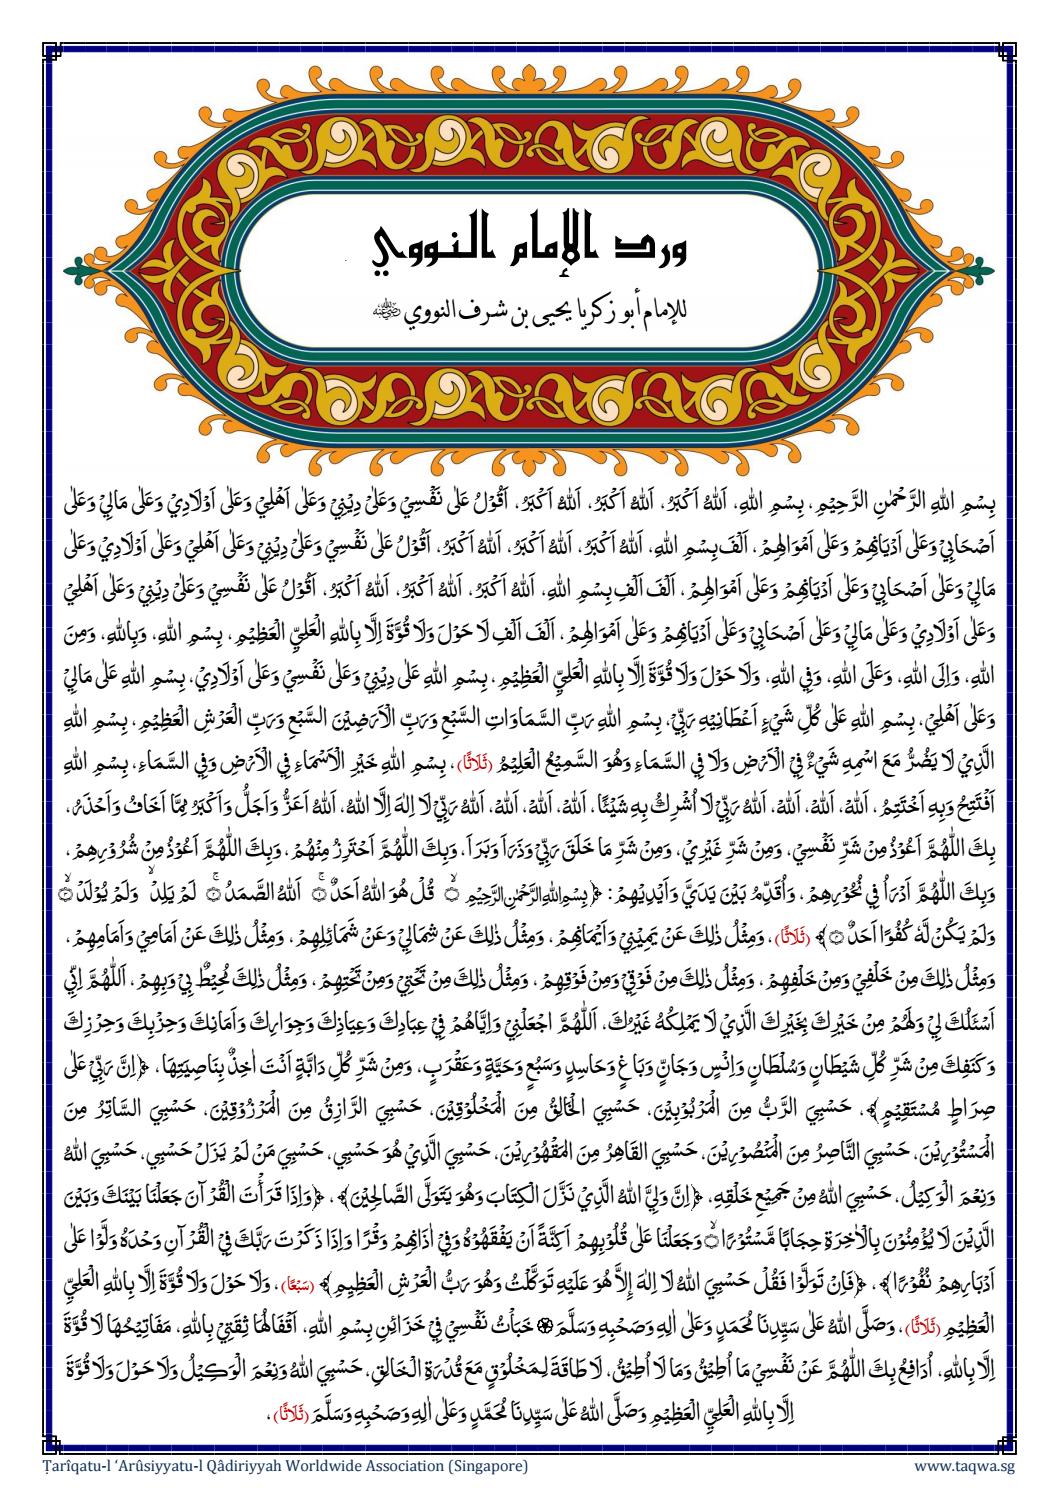 ورد الإمام النووي
للإمام أبو زكريا يحيى بن شرف النووي ﵁
بِسْمِ اللهِ الرَّحْمٰنِ الرَّحِيْمِ، بِسْمِ اللهِ، اَللهُ اَكْبَرُ، اَللهُ اَكْبَرُ، اَللهُ اَكْبَرُ، اَقُوْلُ عَلٰى نَفْسِيْ وَعَلٰىْ دِيْنِيْ وَعَلٰى اَهْلِيْ وَعَلٰى اَوْلَادِيْ وَعَلٰى مَالِيْ وَعَلٰى
اَصْحَابِيْ وَعَلٰى اَدْيَانِهِمْ وَعَلٰى اَمْوَالِهِمْ، اَلْفَ بِسْمِ اللهِ، اَللهُ اَكْبَرُ، اَللهُ اَكْبَرُ، اَللهُ اَكْبَرُ، اَقُوْلُ عَلٰى نَفْسِيْ وَعَلٰىْ دِيْنِيْ وَعَلٰى اَهْلِيْ وَعَلٰى اَوْلَادِيْ وَعَلٰى
مَالِيْ وَعَلٰى اَصْحَابِيْ وَعَلٰى اَدْيَانِهِمْ وَعَلٰى اَمْوَالِهِمْ، اَلْفَ اَلْفِ بِسْمِ اللهِ، اَللهُ اَكْبَرُ، اَللهُ اَكْبَرُ، اَللهُ اَكْبَرُ، اَقُوْلُ عَلٰى نَفْسِيْ وَعَلٰىْ دِيْنِيْ وَعَلٰى اَهْلِيْ
وَعَلٰى اَوْلَادِيْ وَعَلٰى مَالِيْ وَعَلٰى اَصْحَابِيْ وَعَلٰى اَدْيَانِهِمْ وَعَلٰى اَمْوَالِهِمْ، اَلْفَ اَلْفِ لَا حَوْلَ وَلَا قُوَّةَ اِلَّا بِاللهِ الْعَلِيِّ الْعَظِيْمِ، بِسْمِ اللهِ، وَبِاللهِ، وَمِنَ
اللهِ، وَاِلَى اللهِ، وَعَلَى اللهِ، وَفِي اللهِ، وَلَا حَوْلَ وَلَا قُوَّةَ اِلَّا بِاللهِ الْعَلِيِّ الْعَظِيْمِ، بِسْمِ اللهِ عَلٰى دِيْنِيْ وَعَلٰى نَفْسِيْ وَعَلٰى اَوْلَادِيْ، بِسْمِ اللهِ عَلٰى مَالِيْ
وَعَلٰى اَهْلِيْ، بِسْمِ اللهِ عَلٰى كُلِّ شَيْءٍ اَعْطَانِيْهِ رَبِّيْ، بِسْمِ اللهِ رَبِّ السَّمَاوَاتِ السَّبْعِ وَرَبِّ الْاَرَضِيْنَ السَّبْعِ وَرَبِّ الْعَرْشِ الْعَظِيْمِ، بِسْمِ اللهِ
الَّذِيْ لَا يَضُرُّ مَعَ اسْمِهِ شَيْءٌ فِيْ الْاَرْضِ وَلَا فِي السَّمَاءِ وَهُوَ السَّمِيْعُ الْعَلِيْمُ (ثَلَاثًا)، بِسْمِ اللهِ خَيْرِ الْاَسْمَاءِ فِي الْاَرْضِ وَفِي السَّمَاءِ، بِسْمِ اللهِ
اَفْتَتِحُ وَبِهِ اَخْتَتِمُ، اَللهُ، اَللهُ، اَللهُ، اَللهُ رَبِّيْ لَا اُشْرِكُ بِهِ شَيْئًا، اَللهُ، اَللهُ، اَللهُ، اَللهُ رَبِّيْ لَا اِلٰهَ اِلَّا اللهُ، اَللهُ اَعَزُّ وَاَجَلُّ وَاَكْبَرُ مِمَّا اَخَافُ وَاَحْذَرُ،
بِكَ اللّٰهُمَّ اَعُوْذُ مِنْ شَرِّ نَفْسِيْ، وَمِنْ شَرِّ غَيْرِيْ، وَمِنْ شَرِّ مَا خَلَقَ رَبِّيْ وَذَرَاَ وَبَرَاَ، وَبِكَ اللّٰهُمَّ اَحْتَرِزُ مِنْهُمْ، وَبِكَ اللّٰهُمَّ اَعُوْذُ مِنْ شُرُوْرِهِمْ،
وَبِكَ اللّٰهُمَّ اَدْرَاُ فِي نُحُوْرِهِمْ، وَاُقَدِّمُ بَيْنَ يَدَيَّ وَاَيْدِيْهِمْ: ﴿بِسْمِ اللهِ الرَّحْمٰنِ الرَّحِيْمِ ۝ قُلْ هُوَ اللهُ اَحَدٌ ۝ اَللهُ الصَّمَدُ ۝ لَمْ يَلِدْ وَلَمْ يُوْلَدْ ۝
وَلَمْ يَكُنْ لَّهُ كُفُوًا اَحَدٌ ۝﴾ (ثَلَاثًا)، وَمِثْلُ ذٰلِكَ عَنْ يَمِيْنِيْ وَاَيْمَانِهِمْ، وَمِثْلُ ذٰلِكَ عَنْ شِمَالِيْ وَعَنْ شَمَائِلِهِمْ، وَمِثْلُ ذٰلِكَ عَنْ اَمَامِيْ وَاَمَامِهِمْ،
وَمِثْلُ ذٰلِكَ مِنْ خَلْفِيْ وَمِنْ خَلْفِهِمْ، وَمِثْلُ ذٰلِكَ مِنْ فَوْقِيْ وَمِنْ فَوْقِهِمْ، وَمِثْلُ ذٰلِكَ مِنْ تَحْتِيْ وَمِنْ تَحْتِهِمْ، وَمِثْلُ ذٰلِكَ مُحِيْطٌ بِيْ وَبِهِمْ، اَللّٰهُمَّ اِنِّي
اَسْئَلُكَ لِيْ وَلَهُمْ مِنْ خَيْرِكَ بِخَيْرِكَ الَّذِيْ لَا يَمْلِكُهُ غَيْرُكَ، اَللّٰهُمَّ اجْعَلْنِيْ وَاِيَّاهُمْ فِيْ عِبَادِكَ وَعِيَاذِكَ وَجِوَارِكَ وَاَمَانِكَ وَحِزْبِكَ وَحِرْزِكَ
وَكَنَفِكَ مِنْ شَرِّ كُلِّ شَيْطَانٍ وَسُلْطَانٍ وَاِنْسٍ وَجَانٍّ وَبَاغٍ وَحَاسِدٍ وَسَبُعٍ وَحَيَّةٍ وَعَقْرَبٍ، وَمِنْ شَرِّ كُلِّ دَابَّةٍ اَنْتَ اٰخِذٌ بِنَاصِيَتِهَا، ﴿اِنَّ رَبِّيْ عَلٰى
صِرَاطٍ مُسْتَقِيْمٍ﴾، حَسْبِيَ الرَّبُّ مِنَ الْمَرْبُوْبِيْنَ، حَسْبِيَ الْخَالِقُ مِنَ الْمَخْلُوْقِيْنَ، حَسْبِيَ الرَّازِقُ مِنَ الْمَرْزُوْقِيْنَ، حَسْبِيَ السَّاتِرُ مِنَ
الْمَسْتُوْرِيْنَ، حَسْبِيَ النَّاصِرُ مِنَ الْمَنْصُوْرِيْنَ، حَسْبِيَ القَاهِرُ مِنَ المَقْهُوْرِيْنَ، حَسْبِيَ الَّذِيْ هُوَ حَسْبِي، حَسْبِيَ مَنْ لَمْ يَزَلْ حَسْبِي، حَسْبِيَ اللهُ
وَنِعْمَ الْوَكِيْلُ، حَسْبِيَ اللهُ مِنْ جَمِيْعِ خَلْقِهِ، ﴿اِنَّ وَلِيَّ اللهُ الَّذِيْ نَزَّلَ الْكِتَابَ وَهُوَ يَتَوَلَّى الصَّالِحِيْنَ﴾، ﴿وَاِذَا قَرَأْتَ الْقُرْآنَ جَعَلْنَا بَيْنَكَ وَبَيْنَ
الَّذِيْنَ لَا يُؤْمِنُوْنَ بِالْاٰخِرَةِ حِجَابًا مَّسْتُوْرًا ۝ وَجَعَلْنَا عَلٰى قُلُوْبِهِمْ اَكِنَّةً اَنْ يَفْقَهُوْهُ وَفِيْ اٰذَانِهِمْ وَقْرًا وَاِذَا ذَكَرْتَ رَبَّكَ فِيْ الْقُرْآنِ وَحْدَهُ وَلَّوْا عَلٰى
اَدْبَارِهِمْ نُفُوْرًا﴾، ﴿فَاِنْ تَوَلَّوْا فَقُلْ حَسْبِيَ اللهُ لَا اِلٰهَ اِلاَّ هُوَ عَلَيْهِ تَوَكَّلْتُ وَهُوَ رَبُّ الْعَرْشِ الْعَظِيْمِ﴾ (سَبْعًا)، وَلَا حَوْلَ وَلَا قُوَّةَ اِلَّا بِاللهِ الْعَلِيِّ
الْعَظِيْمِ (ثَلَاثًا)، وَصَلَّى اللهُ عَلٰى سَيِّدِنَا مُحَمَدٍ وَعَلٰى اٰلِهِ وَصَحْبِهِ وَسَلَّمَ ۞ خَبَأْتُ نَفْسِيْ فِيْ خَزَائِنِ بِسْمِ اللهِ، اَقْفَالُهَا ثِقَتِيْ بِاللهِ، مَفَاتِيْحُهَا لَا قُوَّةَ
اِلَّا بِاللهِ، اُدَافِعُ بِكَ اللّٰهُمَّ عَنْ نَفْسِيْ مَا اُطِيْقُ وَمَا لَا اُطِيْقُ، لَا طَاقَةَ لِمَخْلُوْقٍ مَعَ قُدْرَةِ الْخَالِقِ، حَسْبِيَ اللهُ وَنِعْمَ الْوَكِيْلُ وَلَا حَوْلَ وَلَا قُوَّةَ
اِلَّا بِاللهِ الْعَلِيِّ الْعَظِيْمِ وَصَلَّى اللهُ عَلٰى سَيِّدِنَا مُحَمَّدٍ وَعَلٰى اٰلِهِ وَصَحْبِهِ وَسَلَّمَ (ثَلَاثًا)،
Ṭarîqatu-l ‘Arûsiyyatu-l Qâdiriyyah Worldwide Association (Singapore) www.taqwa.sg